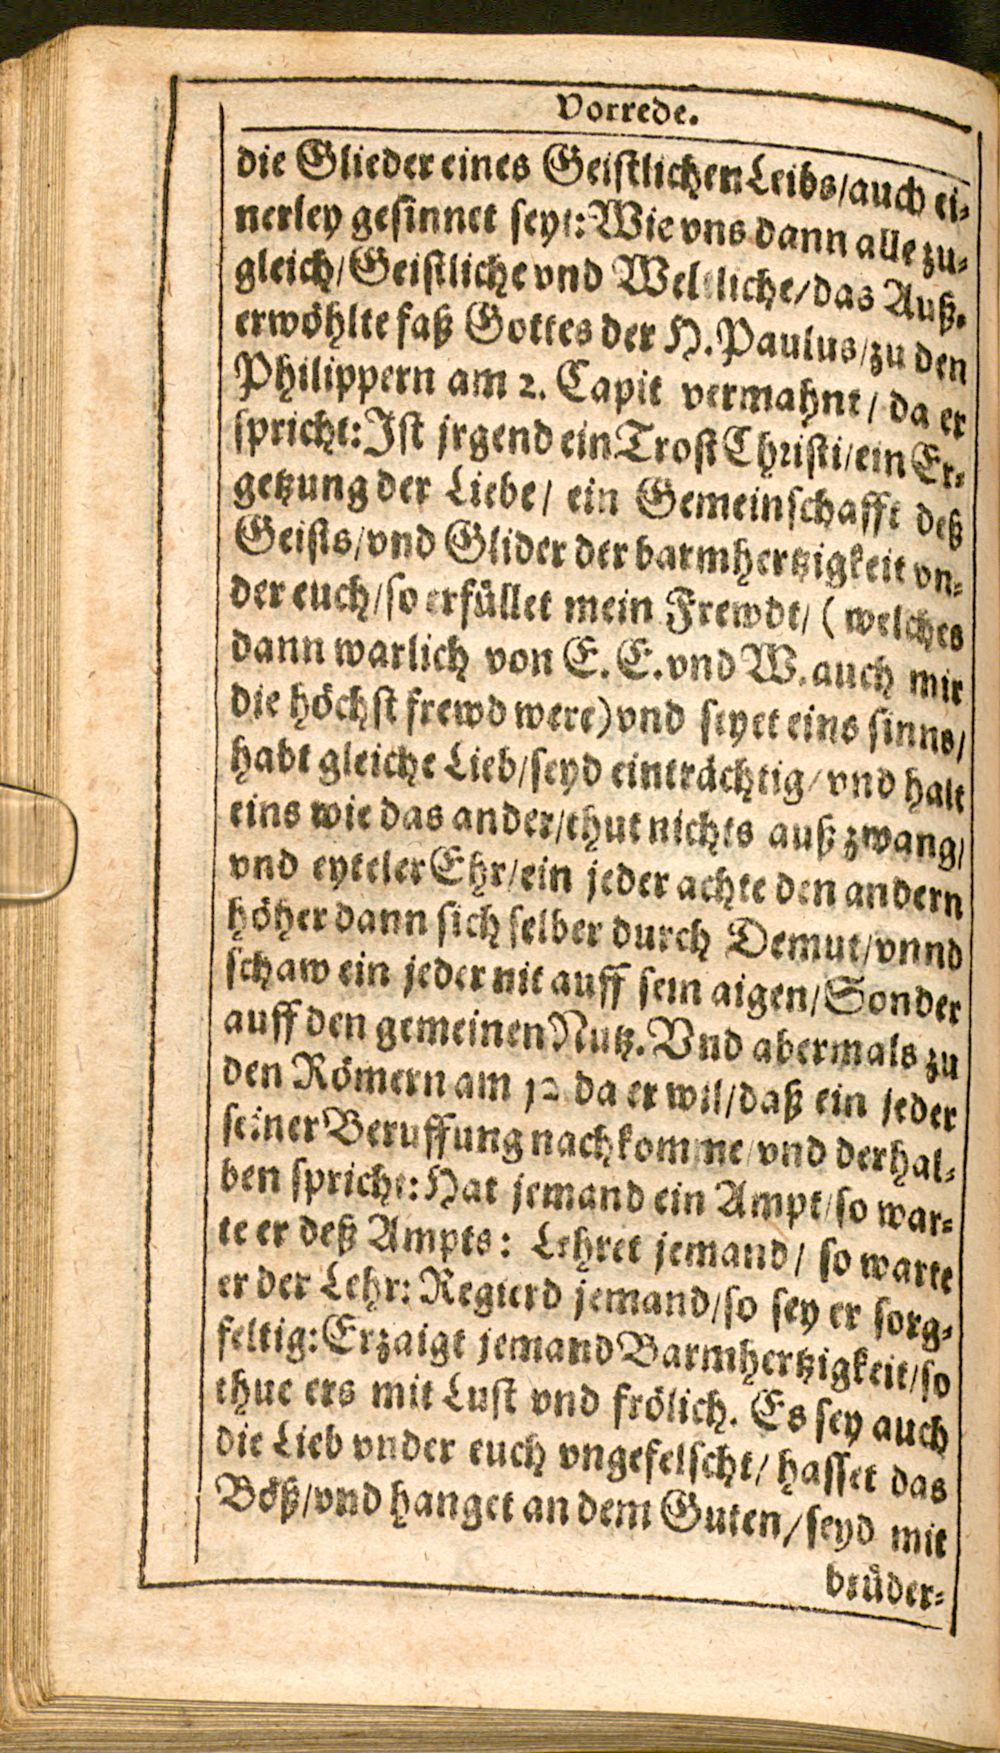 Vorrede.
die Glieder eines Geistlichen Leibs/auch ei-
nerley gesinnet seyt: Wie vns dann alle zu-
gleich/Geistliche vnd Weltliche/das Auß-
erwöhlte faß Gottes der H. Paulus/zu den
Philippern am 2. Capit vermahnt/ da er
spricht: Ist jrgend ein Trost Christi/ein Er-
getzung der Liebe/ ein Gemeinschafft deß
Geists/vnd Glider der barmhertzigkeit vn-
der euch/so erfüllet mein Frewdt/ (welches
dann warlich von E. E. vnd W. auch mir
die höchst frewd were) vnd seyet eins sinns/
habt gleiche Lieb/seyd einträchtig/vnd halt
eins wie das ander/thut nichts auß zwang/
vnd eyteler Ehr/ein jeder achte den andern
höher dann sich selber durch Demut/vnnd
schaw ein jeder nit auff sein aigen/Sonder
auff den gemeinen Nutz. Vnd abermals zu
den Römern am 12 da er wil/daß ein jeder
seiner Beruffung nachkomme/vnd derhal-
ben spricht: Hat jemand ein Ampt/so war-
te er deß Ampts: Lehret jemand/ so warte
er der Lehr: Regierd jemand/so sey er sorg-
feltig: Erzaigt jemand Barmhertzigkeit/so
thue ers mit Lust vnd frölich. Es sey auch
die Lieb vnder euch vngefelscht/ hasset das
Böß/vnd hanget an dem Guten/seyd mit
brüder-